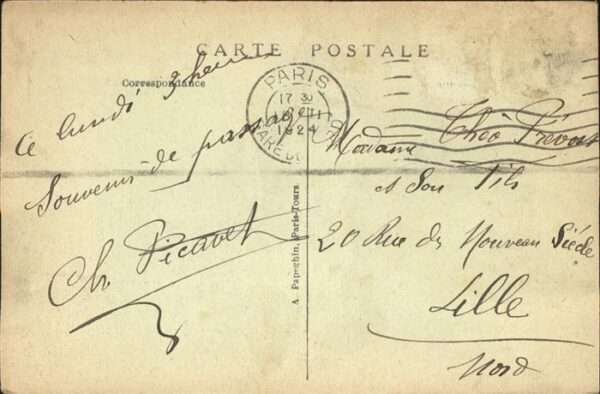 CARTE POSTALE
Correspondance
à lundi 9 heures
Souvenir de passage
Ch Picavet
PARIS
17
1924
GARE DU
A. Papeghin, Paris-Tours
Madame Théo Prévost
et Son Fils
20 Rue du Nouveau Siècle
Lille
Nord